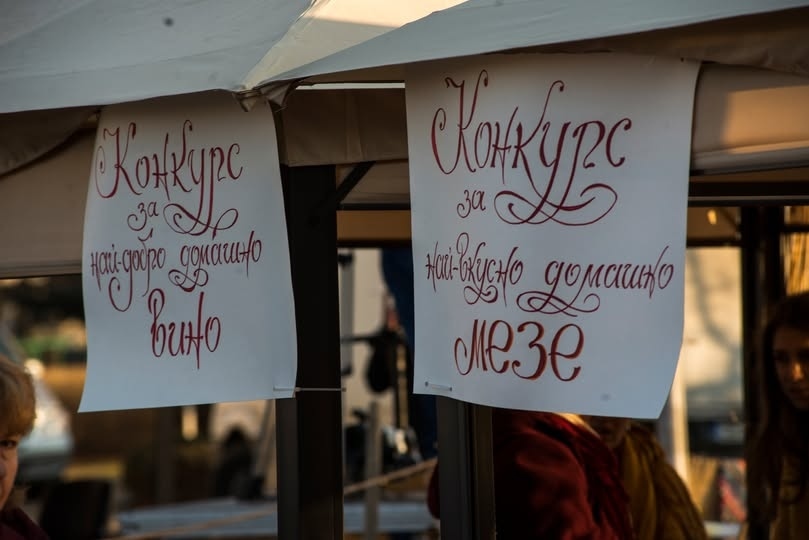 Конкурс
за
най-добро домашно
вино
Конкурс
за
най-вкусно домашно
мезе